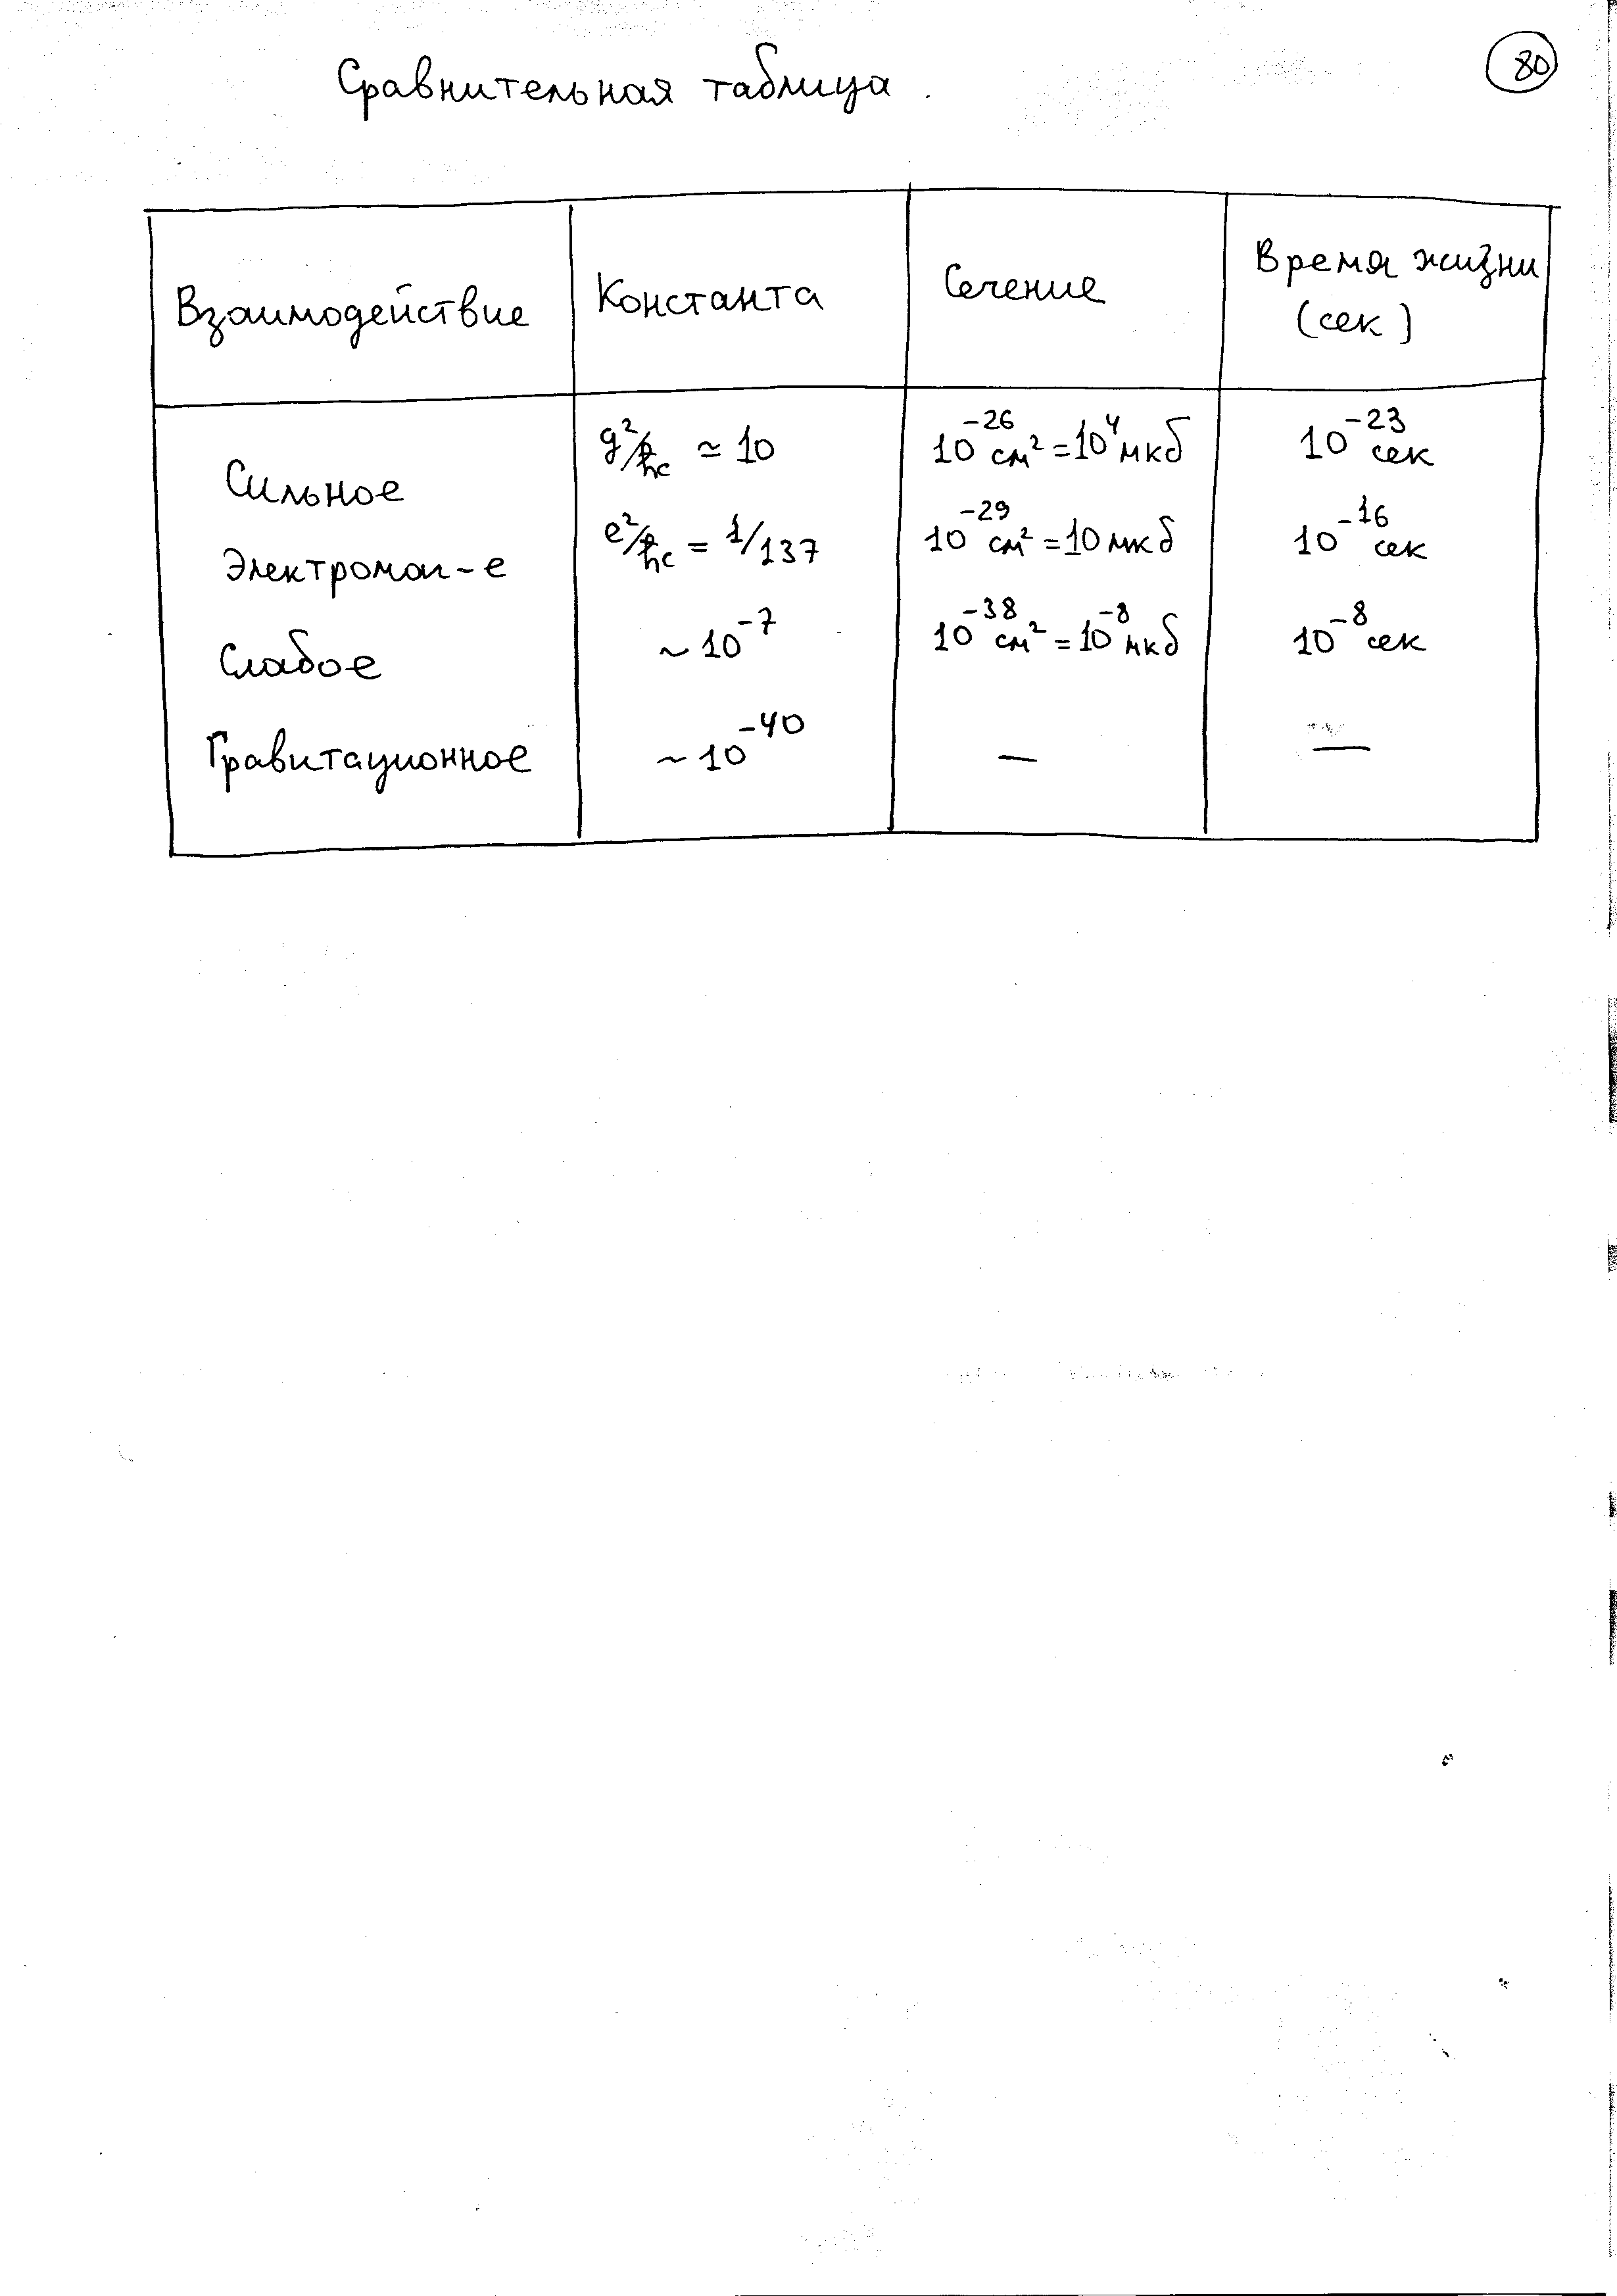 80
Сравнительная таблица.
Взаимодействие Константа Сечение Время жизни (сек)
Сильное g²/ħc ≃ 10 10⁻²⁶ см² = 10⁴ мкб 10⁻²³ сек
Электромаг-е e²/ħc = 1/137 10⁻²⁹ см² = 10 мкб 10⁻¹⁶ сек
Слабое ~ 10⁻⁷ 10⁻³⁸ см² = 10⁻⁸ мкб 10⁻⁸ сек
Гравитационное ~ 10⁻⁴⁰ — —